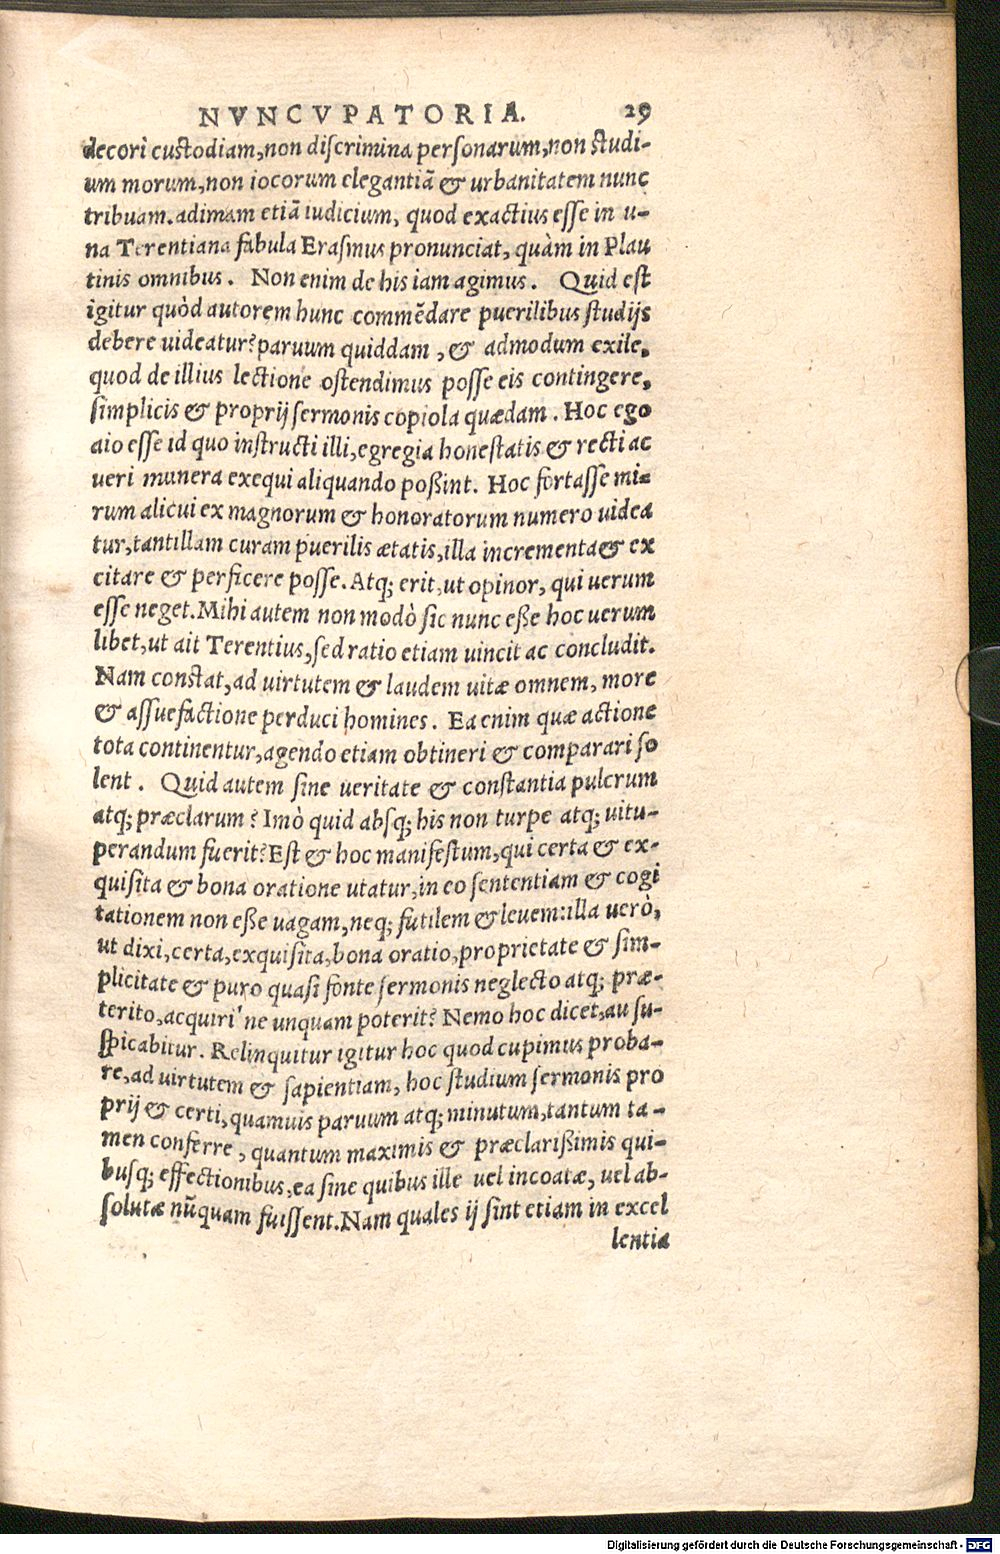 NVNCVPATORIA. 29
decori custodiam, non discrimina personarum, non studi-
um morum, non iocorum elegantiã & urbanitatem nunc
tribuam. adimam etiã iudicium, quod exactius esse in u-
na Terentiana fabula Erasmus pronunciat, quàm in Plau
tinis omnibus. Non enim de his iam agimus. Quid est
igitur quòd autorem hunc commẽdare puerilibus studijs
debere uideatur? paruum quiddam, & admodum exile,
quod de illius lectione ostendimus posse eis contingere,
simplicis & proprij sermonis copiola quædam. Hoc ego
aio esse id quo instructi illi, egregia honestatis & recti ac
ueri munera exequi aliquando poßint. Hoc fortasse mi-
rum alicui ex magnorum & honoratorum numero uidea
tur, tantillam curam puerilis ætatis, illa incrementa & ex
citare & perficere posse. Atq; erit, ut opinor, qui uerum
esse neget. Mihi autem non modò sic nunc eße hoc uerum
libet, ut ait Terentius, sed ratio etiam uincit ac concludit.
Nam constat, ad uirtutem & laudem uitæ omnem, more
& assuefactione perduci homines. Ea enim quæ actione
tota continentur, agendo etiam obtineri & comparari so
lent. Quid autem sine ueritate & constantia pulcrum
atq; præclarum? Imò quid absq; his non turpe atq; uitu-
perandum fuerit? Est & hoc manifestum, qui certa & ex-
quisita & bona oratione utatur, in eo sententiam & cogi
tationem non eße uagam, neq; futilem & leuem: illa uerò,
ut dixi, certa, exquisita, bona oratio, proprietate & sim-
plicitate & puro quasi fonte sermonis neglecto atq; præ-
terito, acquiri'ne unquam poterit? Nemo hoc dicet, au su-
spicabitur. Relinquitur igitur hoc quod cupimus proba-
re, ad uirtutem & sapientiam, hoc studium sermonis pro
prij & certi, quamuis paruum atq; minutum, tantum ta-
men conferre, quantum maximis & præclarißimis qui-
busq; effectionibus, ea sine quibus ille uel incoatæ, uel ab-
solutæ nũquam fuissent. Nam quales ij sint etiam in excel
lentia
Digitalisierung gefördert durch die Deutsche Forschungsgemeinschaft - DFG